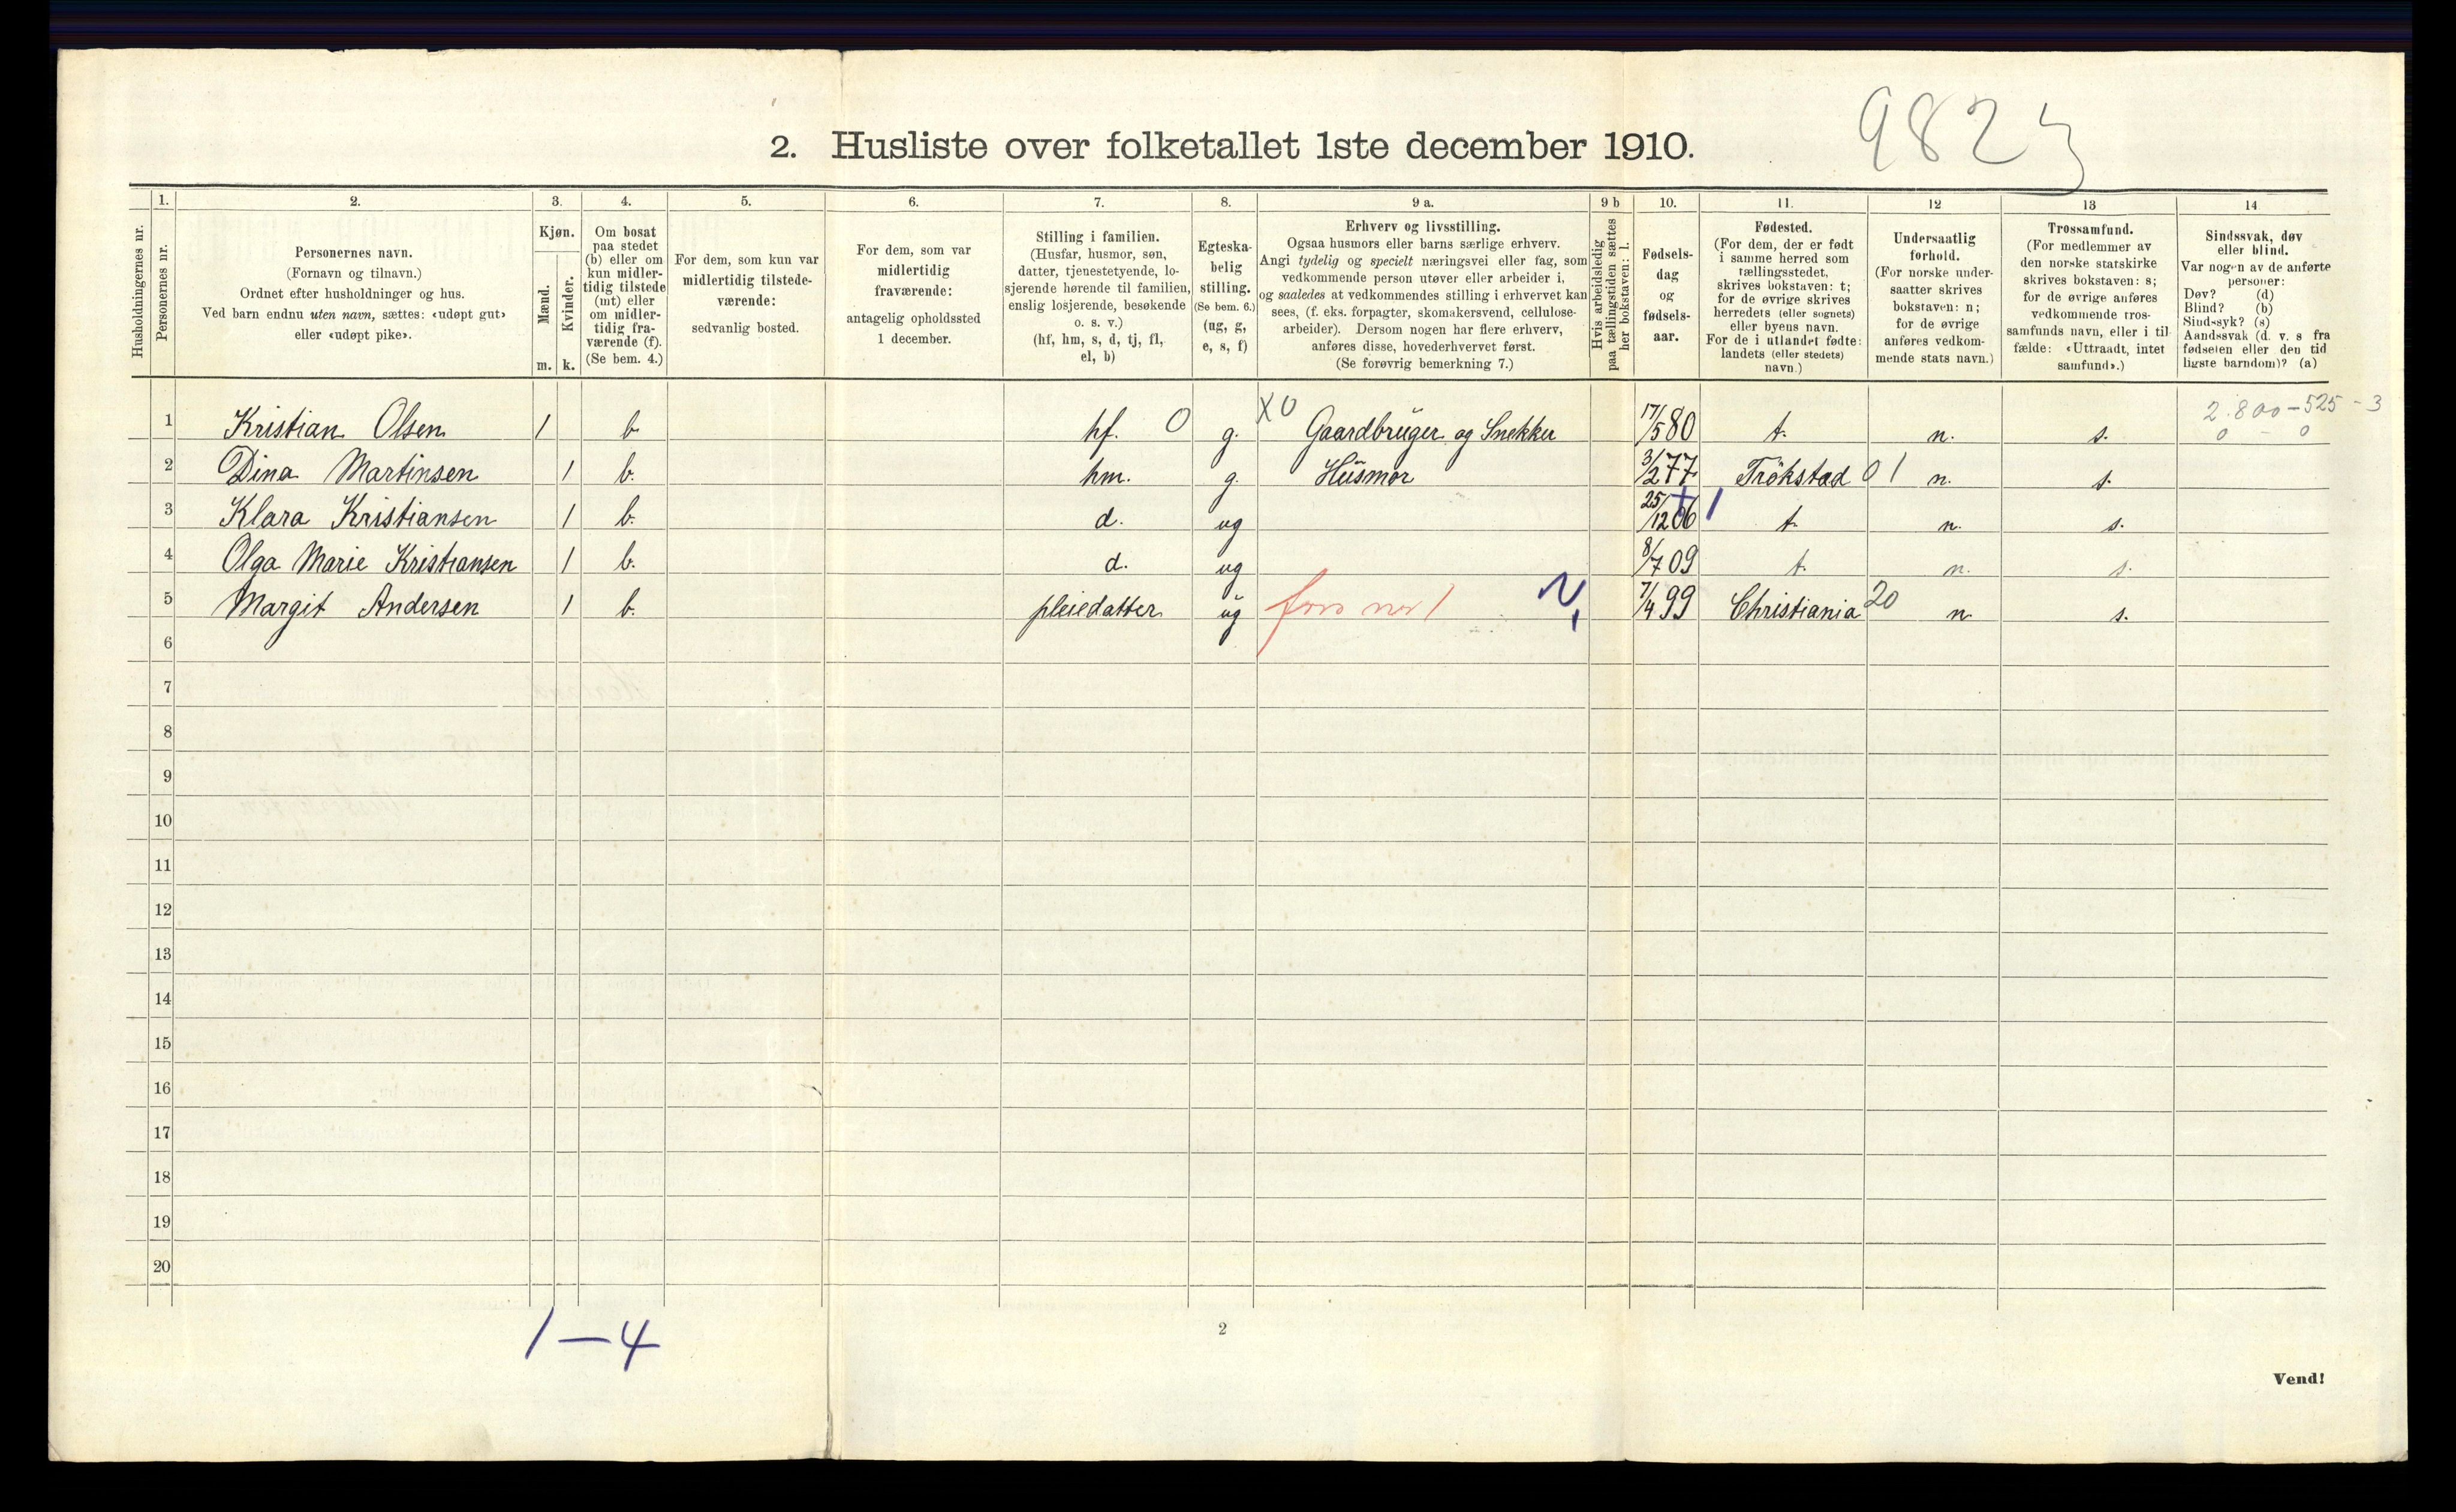 2. Husliste over folketallet 1ste december 1910.
982
Husholdningernes nr.
1.
Personernes nr.
2.
Personernes navn.
(Fornavn og tilnavn.)
Ordnet efter husholdninger og hus.
Ved barn endnu uten navn, sættes: «udøpt gut»
eller «udøpt pike».
3.
Kjøn.
Mænd.
Kvinder.
m. k.
4.
Om bosat
paa stedet
(b) eller om
kun midler-
tidig tilstede
(mt) eller
om midler-
tidig fra-
værende (f).
(Se bem. 4.)
5.
For dem, som kun var
midlertidig tilstede-
værende:
sedvanlig bosted.
6.
For dem, som var
midlertidig
fraværende:
antagelig opholdssted
1 december.
7.
Stilling i familien.
(Husfar, husmor, søn,
datter, tjenestetyende, lo-
sjerende hørende til familien,
enslig losjerende, besøkende
o. s. v.)
(hf, hm, s, d, tj, fl,
el, b)
8.
Egteska-
belig
stilling.
(Se bem. 6.)
(ug, g,
e, s, f)
9 a.
Erhverv og livsstilling.
Ogsaa husmors eller barns særlige erhverv.
Angi tydelig og specielt næringsvei eller fag, som
vedkommende person utøver eller arbeider i,
og saaledes at vedkommendes stilling i erhvervet kan
sees, (f. eks. forpagter, skomakersvend, cellulose-
arbeider). Dersom nogen har flere erhverv,
anføres disse, hovederhvervet først.
(Se forøvrig bemerkning 7.)
9 b
Hvis arbeidsledig
paa tællingstiden sættes
her bokstaven: l.
10.
Fødsels-
dag
og
fødsels-
aar.
11.
Fødested.
(For dem, der er født
i samme herred som
tællingsstedet,
skrives bokstaven: t;
for de øvrige skrives
herredets (eller sognets)
eller byens navn.
For de i utlandet fødte:
landets (eller stedets)
navn.)
12
Undersaatlig
forhold.
(For norske under-
saatter skrives
bokstaven: n;
for de øvrige
anføres vedkom-
mende stats navn.)
13
Trossamfund.
(For medlemmer av
den norske statskirke
skrives bokstaven: s;
for de øvrige anføres
vedkommende tros-
samfunds navn, eller i til
fælde: «Uttraadt, intet
samfund».)
14
Sindssvak, døv
eller blind.
Var nogen av de anførte
personer:
Døv? (d)
Blind? (b)
Sindssyk? (s)
Aandssvak (d. v. s fra
fødselen eller den tid
ligste barndom)? (a)
1 Kristian Olsen 1 b. hf. 0 g. X0 Gaardbruger og Snekker 17/5 80 t. n. s. 2.800-525-3
0 - 0
2 Dina Martinsen 1 b. hm. g. Husmor 3/2 77 Trökstad 01 n. s.
3 Klara Kristiansen 1 b. d. ug 25/12 06 1 t. n. s.
4 Olga Marie Kristiansen 1 b. d. ug 8/7 09 t. n. s.
5 Margit Andersen 1 b. pleiedatter ug 7/4 99 Christiania 20 n. s.
6
7
8
9
10
11
12
13
14
15
16
17
18
19
20
1-4
2
Vend!